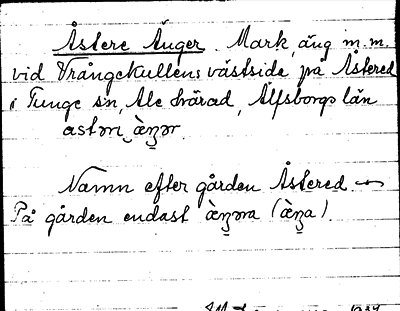 Åstere Änger. Mark, äng m.m.
vid Vrångekullens västsida på Åstered
i Tunge sn, Ale härad, Älfsborgs län
Namn efter gården Åstered.
På gården endast